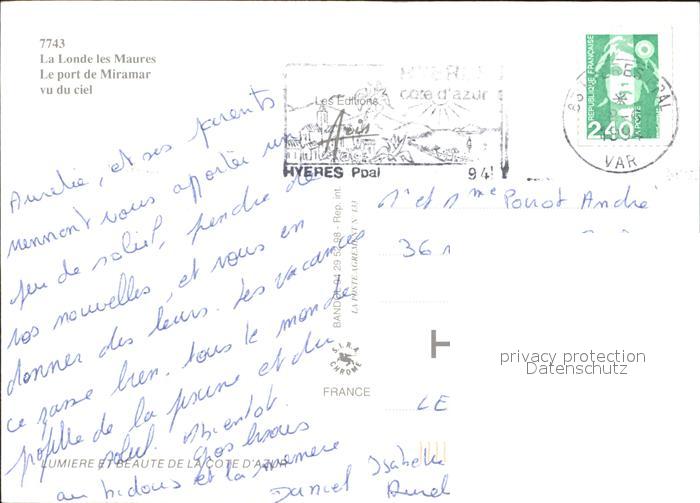 7743
La Londe les Maures
Le port de Miramar
vu du ciel
Aurélie, et ses parents
viennent vous apporter un
peu de soleil, prendre de
vos nouvelles, et vous en
donner des leurs. Les vacances
ce passe bien. tous le monde
profite de la piscine et du
soleil. Abientot.
Gros bisous
au bidous et la mamere
Daniel Isabelle
Aurel
LUMIERE ET BEAUTE DE LA COTE D'AZUR
Les Editions
HYERES
côte d'azur
HYERES Ppal
94
REPUBLIQUE FRANÇAISE
LA POSTE
2,40
VAR
Mr et Mme Poirot André
36
LE
BANDOL 94 29 52 98 - Rep. int.
LA POSTE AGREMENT N° 133
S.I.R.A. CHROME
FRANCE
privacy protection
Datenschutz